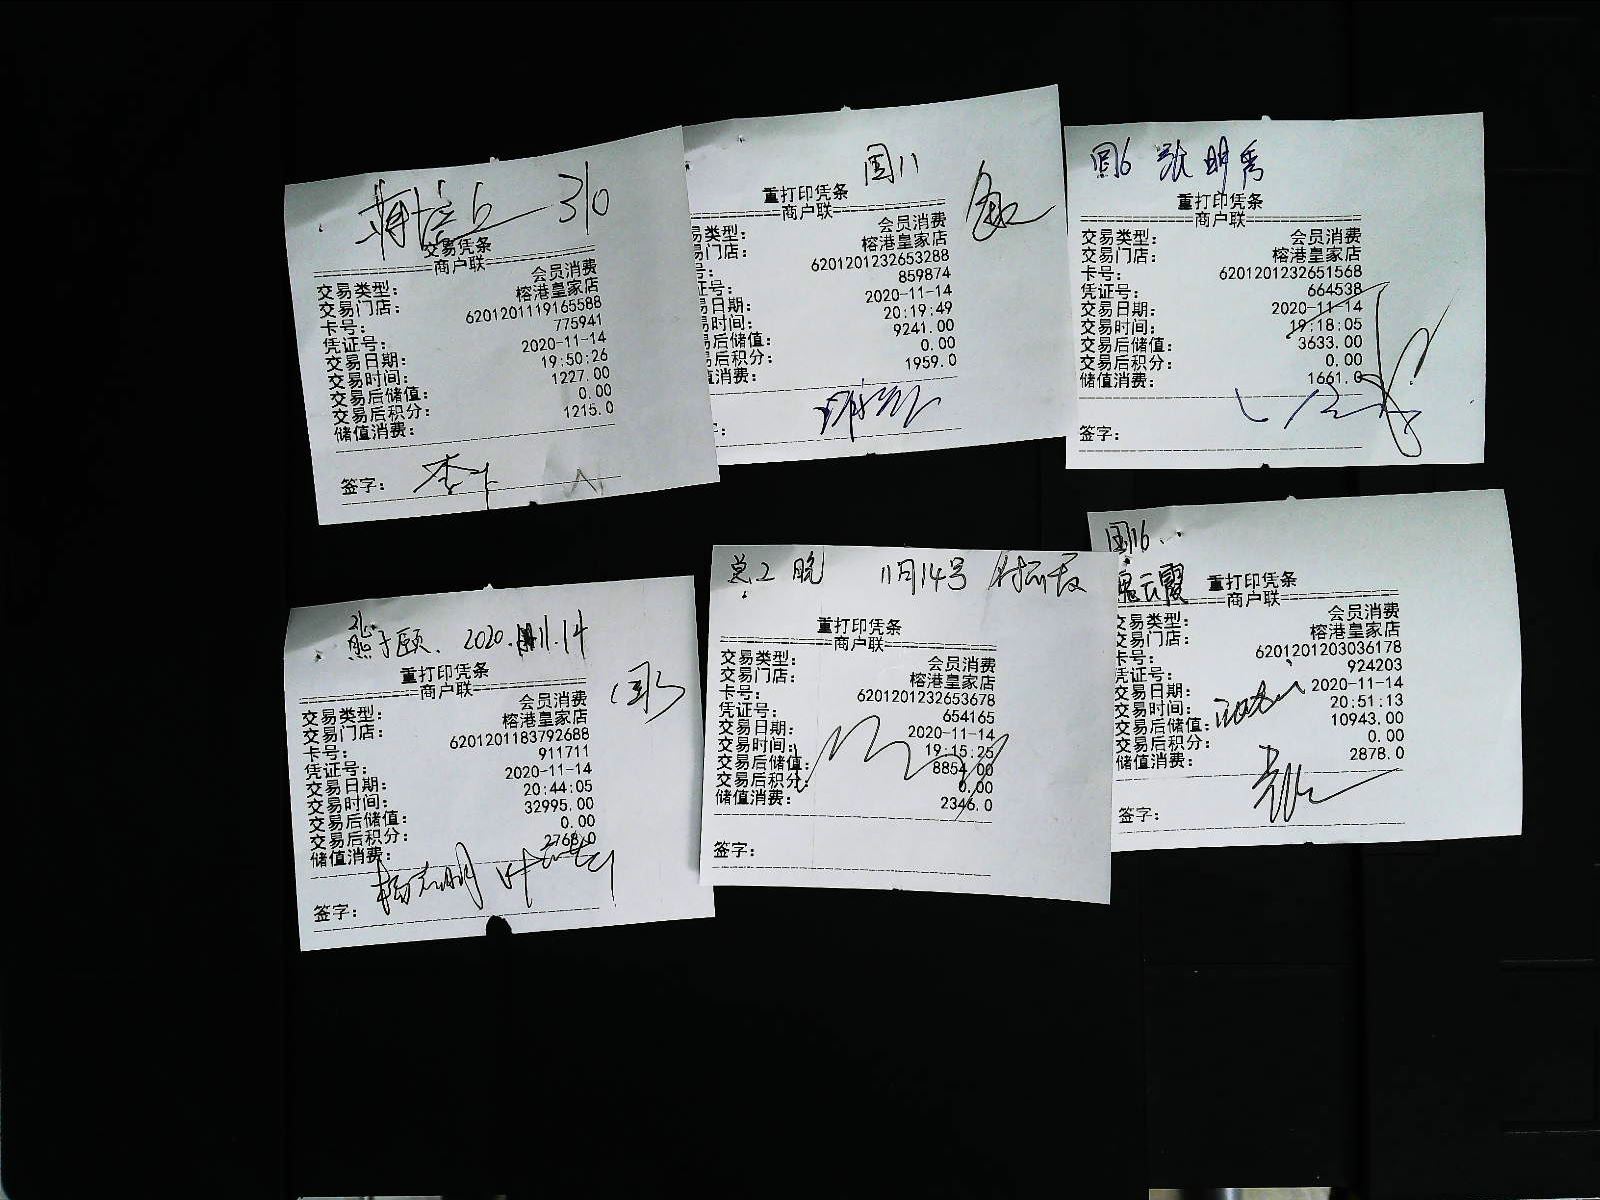 310
交易凭条
商户联
交易类型: 会员消费
交易门店: 榕港皇家店
卡号: 6201201119165588
凭证号: 775941
交易日期: 2020-11-14
交易时间: 19:50:26
交易后储值: 1227.00
交易后积分: 0.00
储值消费: 1215.0
签字:
国11
重打印凭条
商户联
易类型: 会员消费
易门店: 榕港皇家店
号: 6201201232653288
证号: 859874
易日期: 2020-11-14
易时间: 20:19:49
易后储值: 9241.00
易后积分: 0.00
值消费: 1959.0
国6 张明秀
重打印凭条
商户联
交易类型: 会员消费
交易门店: 榕港皇家店
卡号: 6201201232651568
凭证号: 664538
交易日期: 2020-11-14
交易时间: 19:18:05
交易后储值: 3633.00
交易后积分: 0.00
储值消费: 1661.0
签字:
熊子颐. 2020.11.14
国3
重打印凭条
商户联
交易类型: 会员消费
交易门店: 榕港皇家店
卡号: 6201201183792688
凭证号: 911711
交易日期: 2020-11-14
交易时间: 20:44:05
交易后储值: 32995.00
交易后积分: 0.00
储值消费: 2768.0
签字: 杨志明
总2 晚 11月14号
重打印凭条
商户联
交易类型: 会员消费
交易门店: 榕港皇家店
卡号: 6201201232653678
凭证号: 654165
交易日期: 2020-11-14
交易时间: 19:15:25
交易后储值: 8854.00
交易后积分: 0.00
储值消费: 2346.0
签字:
国16
云霞
重打印凭条
商户联
交易类型: 会员消费
交易门店: 榕港皇家店
卡号: 6201201203036178
凭证号: 924203
交易日期: 2020-11-14
交易时间: 20:51:13
交易后储值: 10943.00
交易后积分: 0.00
储值消费: 2878.0
签字: